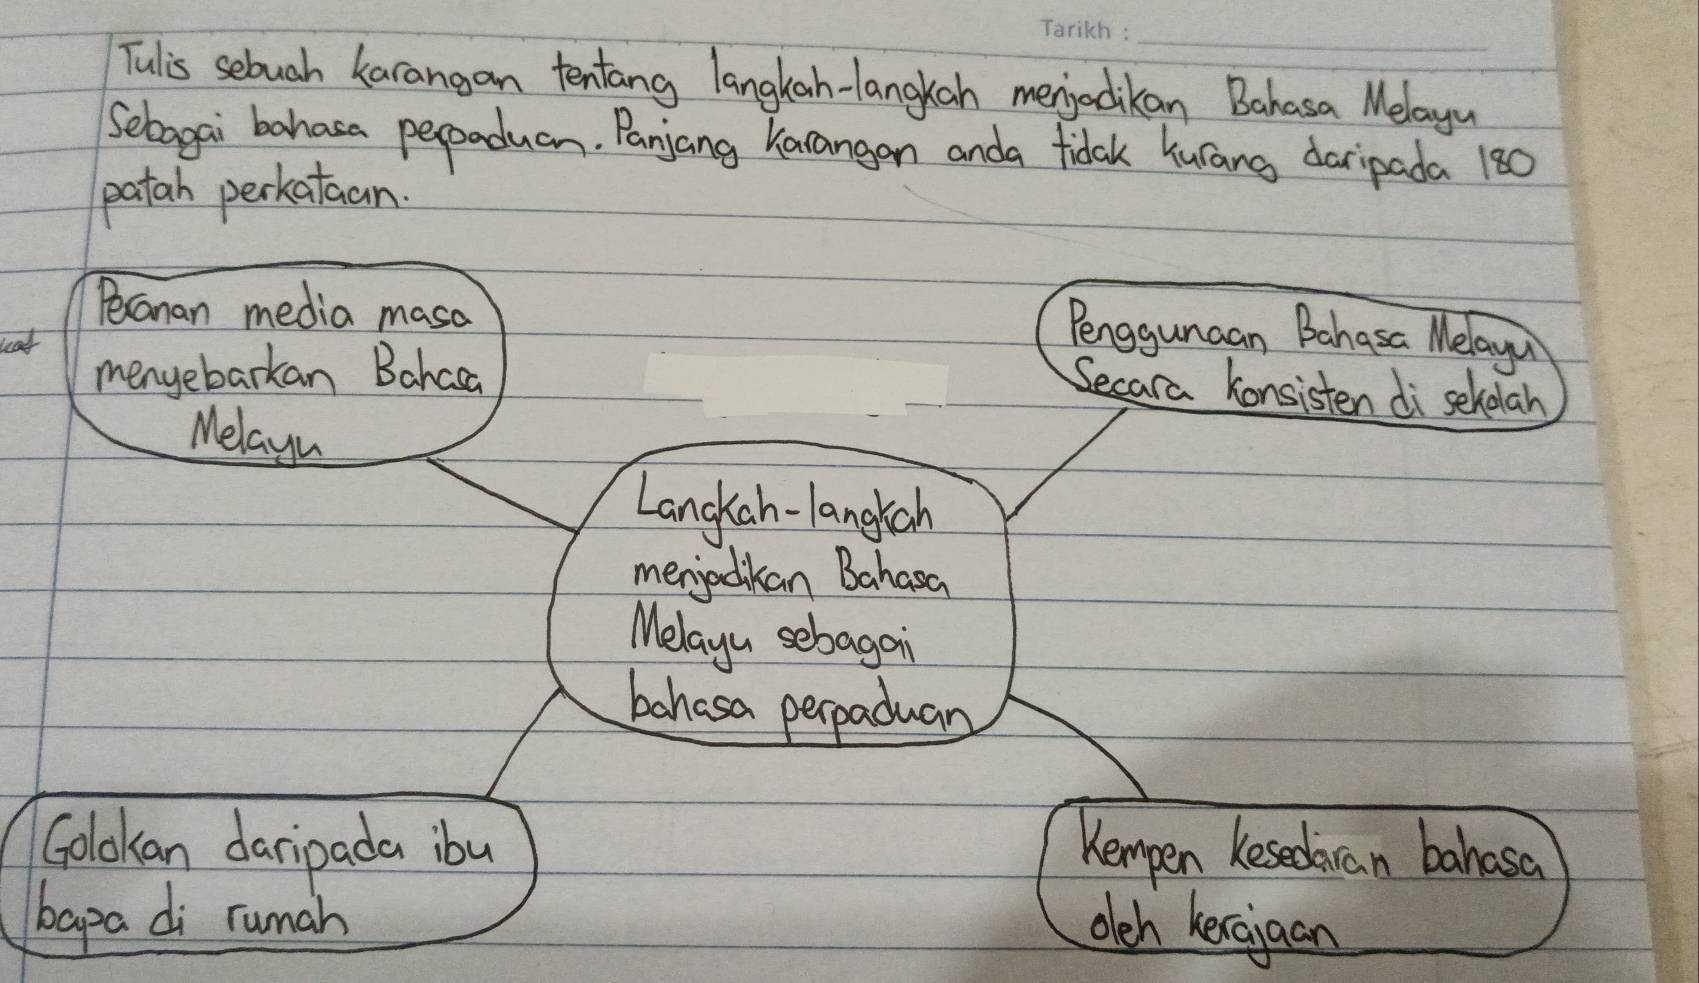 Tarikh :
Tulis sebuah karangan tentang langkah-langkah menjadikan Bahasa Melayu
Sebagai bahasa perpaduan. Panjang karangan anda tidak kurang daripada 180
patah perkataan.
Peranan media masa
menyebarkan Bahasa
Melayu
Penggunaan Bahasa Melayu
Secara konsisten di sekolah
Langkah-langkah
menjadikan Bahasa
Melayu sebagai
bahasa perpaduan
Galakan daripada ibu
bapa di rumah
Kempen kesedaran bahasa
oleh kerajaan